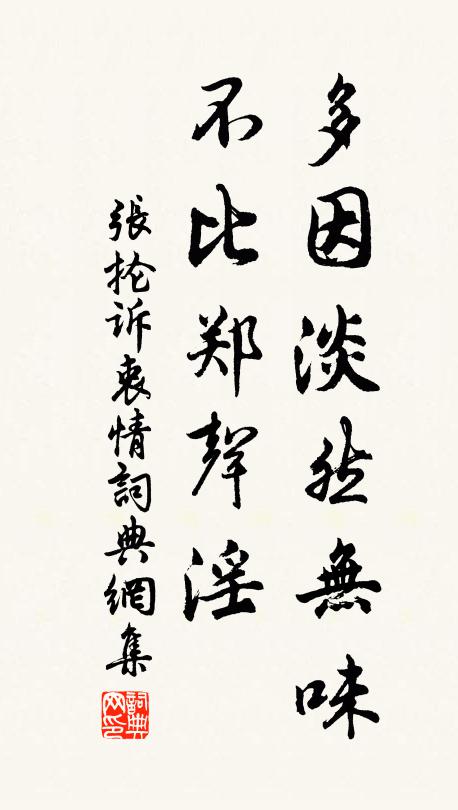 多因淡然無味
不比郑聲淫
張抡訴衷情詞典網集
詞典网印